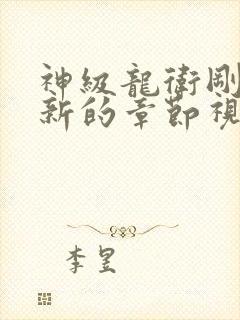 神級龍衛剛
新的章節視
李昱